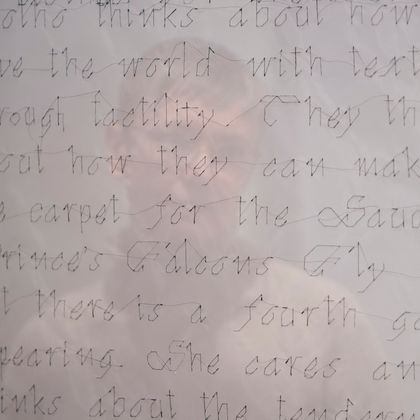 otho thinks about how
ve the world with text
rough tactility. They th
out how they can mak
e carpet for the Saud
Prince's Falcons Fly
t there is a fourth go
pearing. She cares an
inks about the tender